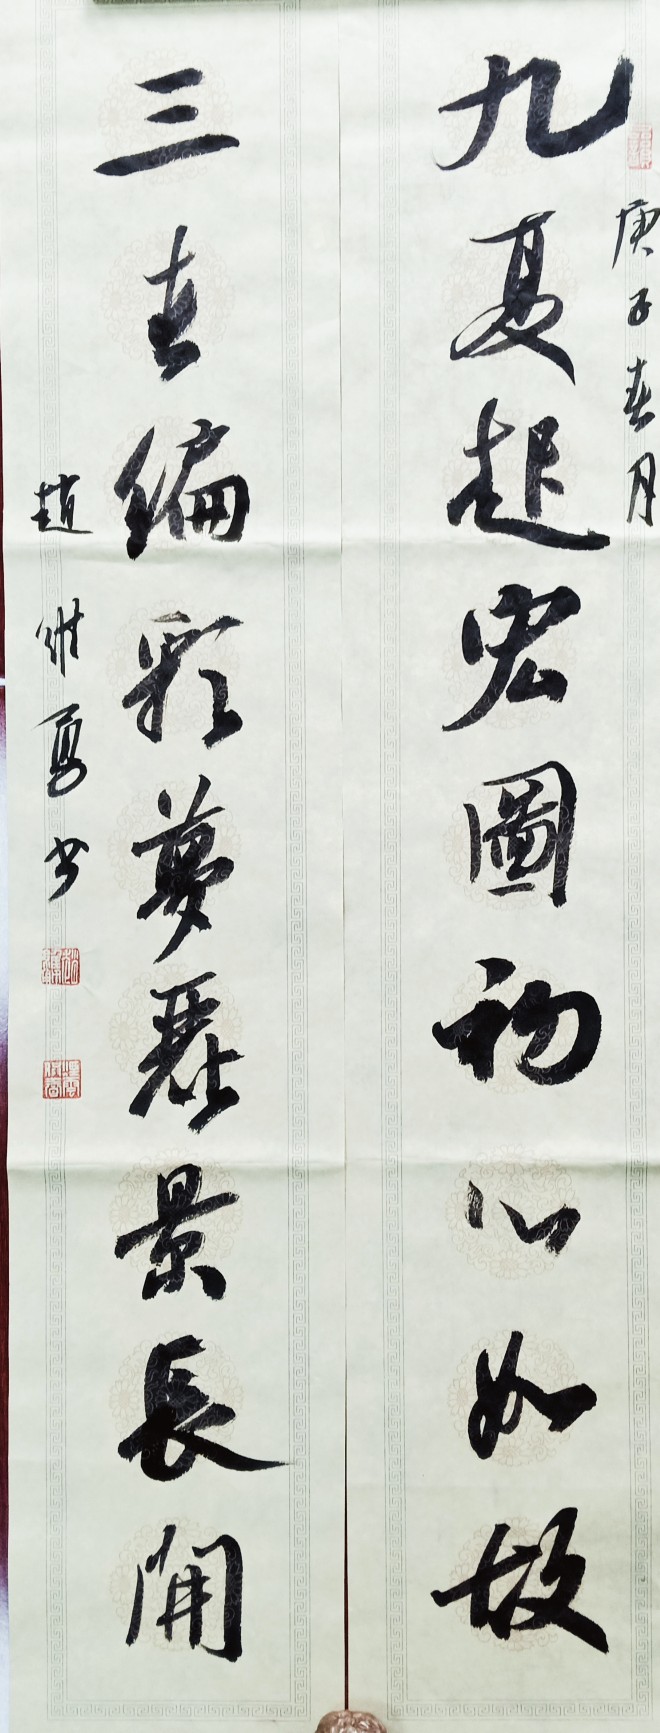 庚子春月
九夏起宏圖初心如故
三春編彩夢麗景長開
趙維勇书